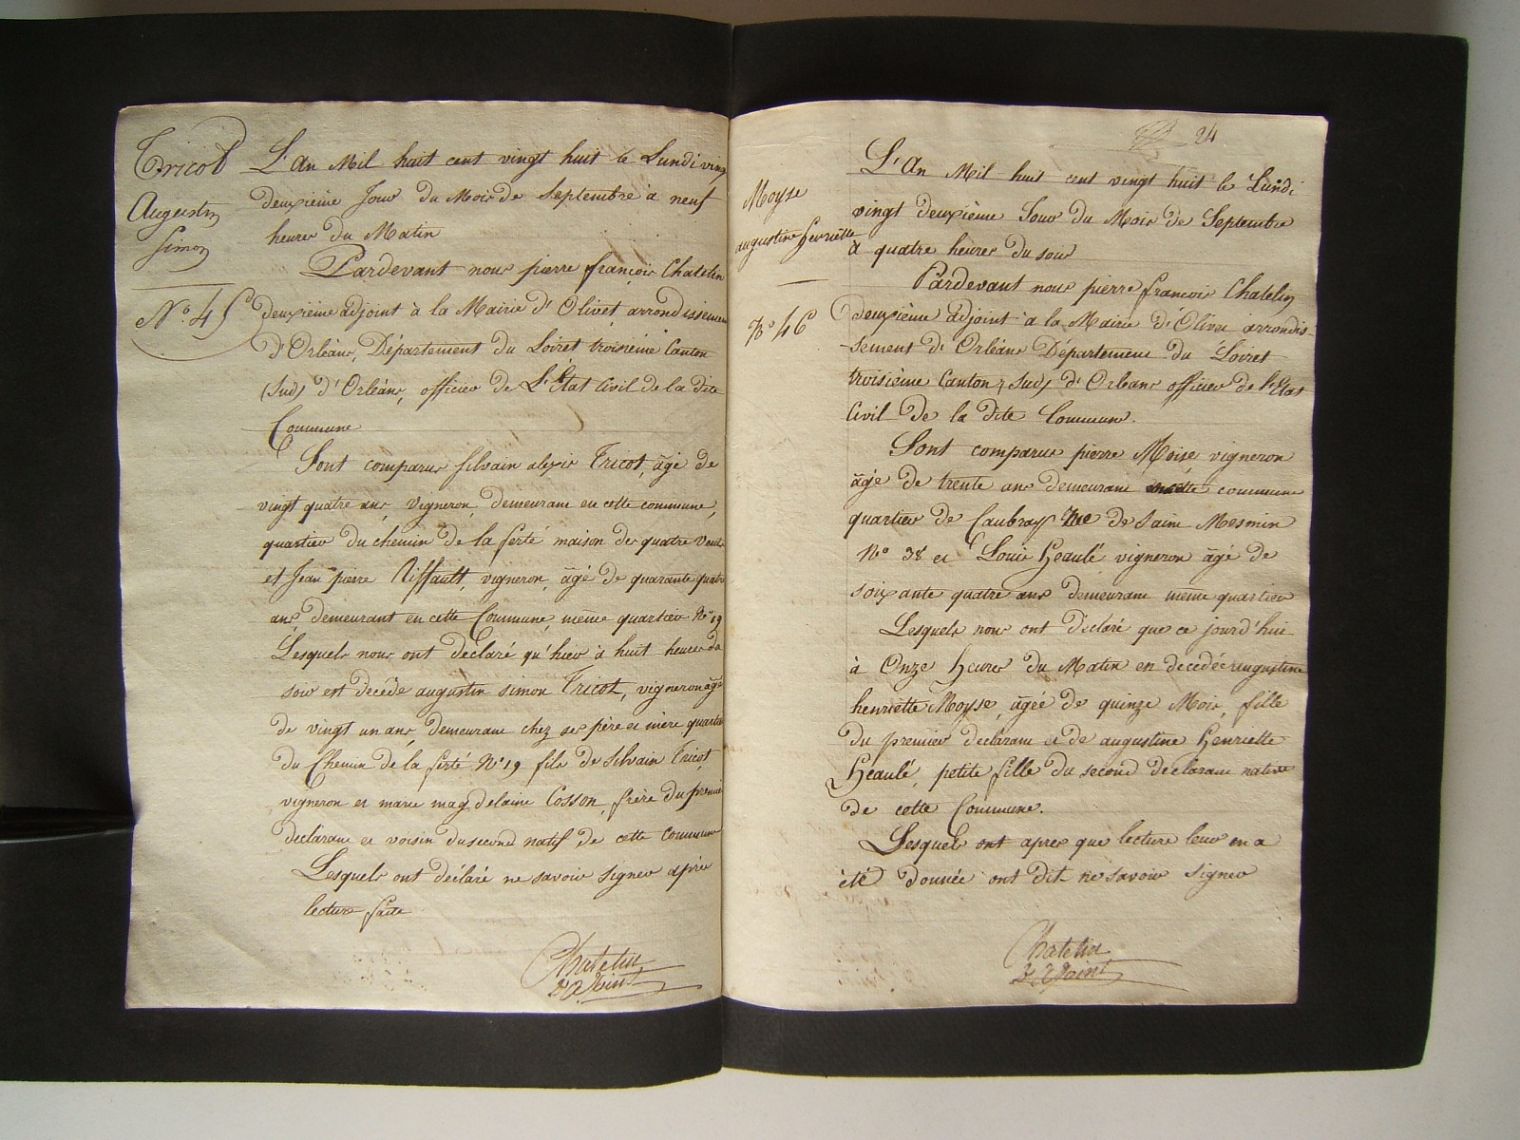 Tricot
Augustin
Simon
N.° 45
L'An Mil huit cent vingt huit le Lundi vingt
deuxième Jour du Mois de Septembre à neuf
heures du Matin
Pardevant nous pierre françois Chatelin
deuxième adjoint à la Mairie d'Olivet arrondissement
d'Orléans, Département du Loiret troisième Canton
(Sud) d'Orléans, officier de L'Etat Civil de la dite
Commune
Sont comparus silvain alexis Tricot, âgé de
vingt quatre ans, vigneron demeurant en cette commune,
quartier du chemin de la ferté maison des quatre Vents
et Jean pierre Riffault, vigneron, âgé de quarante quatre
ans, demeurant en cette Commune, même quartier N° 19
Lesquels nous ont déclaré qu'hier à huit heures du
soir est décédé augustin simon Tricot, vigneron âgé
de vingt un ans, demeurant chez ses père et mère quartier
du Chemin de la ferté N° 19 fils de Silvain Tricot,
vigneron et marie magdelaine Cosson, frère du premier
déclarant et voisin du second natif de cette Commune
Lesquels ont déclaré ne savoir signer après
lecture faite
Chatelin
2e adjoint
24
Moyse
augustine henriette
N° 46
L'An Mil huit cent vingt huit le Lundi
vingt deuxième Jour du Mois de Septembre
à quatre heures du soir
Pardevant nous pierre francois Chatelin
deuxième adjoint à la Mairie d'Olivet arrondis-
-sement d'Orléans Département du Loiret
troisième Canton (Sud) d'Orleans officier de l'Etat
Civil de la dite Commune.
Sont comparus pierre Moise vigneron
âgé de trente ans demeurant en cette commune
quartier de Caubray Rue de Saint Mesmin
N° 38 et Louis Heaulé vigneron âgé de
soixante quatre ans demeurant même quartier
Lesquels nous ont déclaré que ce jourd'hui
à Onze heures du Matin est décédée augustine
henriette Moyse, agée de quinze Mois, fille
du premier declarant et de augustine Henriette
Heaulé, petite fille du second declarant native
de cette Commune.
Lesquels ont apres que lecture leur en a
été donnée ont dit ne savoir signer
Chatelin
2e adjoint